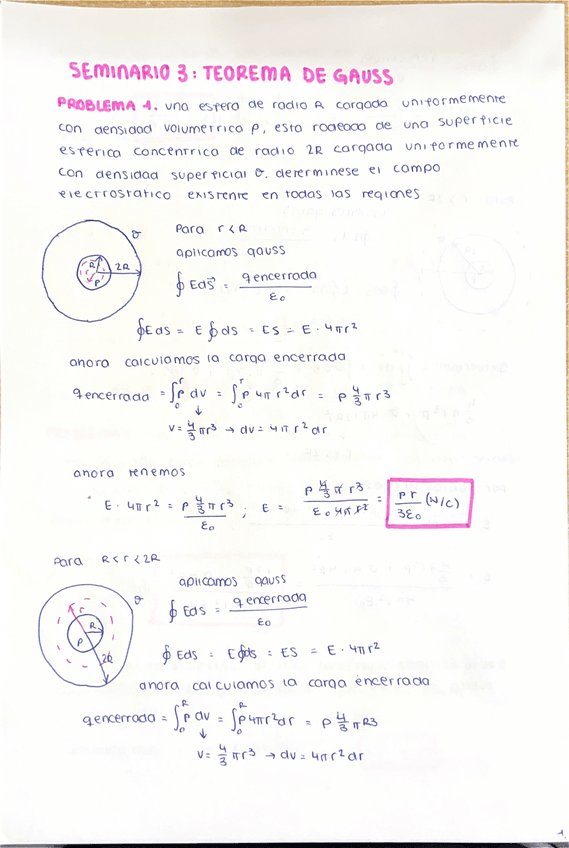 SEMINARIO 3: TEOREMA DE GAUSS
PROBLEMA 1. una esfera de radio R cargada uniformemente
con densidad volumetrica ρ, esta rodeada de una superficie
esferica concentrica de radio 2R cargada uniformemente
con densidad superficial σ. determinese el campo
electrostatico existente en todas las regiones
Para r < R
σ
R
2R
r
ρ
aplicamos gauss
∮ Eds⃗ = qencerrada / ε₀
∮Eds = E ∮ds = ES = E · 4πr²
ahora calculamos la carga encerrada
qencerrada = ∫₀ʳ ρ dv = ∫₀ʳ ρ 4πr²dr = ρ 4/3 πr³
↓
v = 4/3 πr³ → dv = 4πr²dr
ahora tenemos
E · 4πr² = ρ 4/3 πr³ / ε₀ ; E = ρ 4/3 π r³ / ε₀ 4π r² = ρr / 3ε₀ (N/C)
Para R < r < 2R
aplicamos gauss
σ
r
R
ρ
2R
∮ Eds = qencerrada / ε₀
∮ Eds = E∮ds = ES = E · 4πr²
ahora calculamos la carga encerrada
qencerrada = ∫₀ᴿ ρ dv = ∫₀ᴿ ρ4πr²dr = ρ 4/3 πR3
↓
v = 4/3 πr³ → dv = 4πr²dr
1.